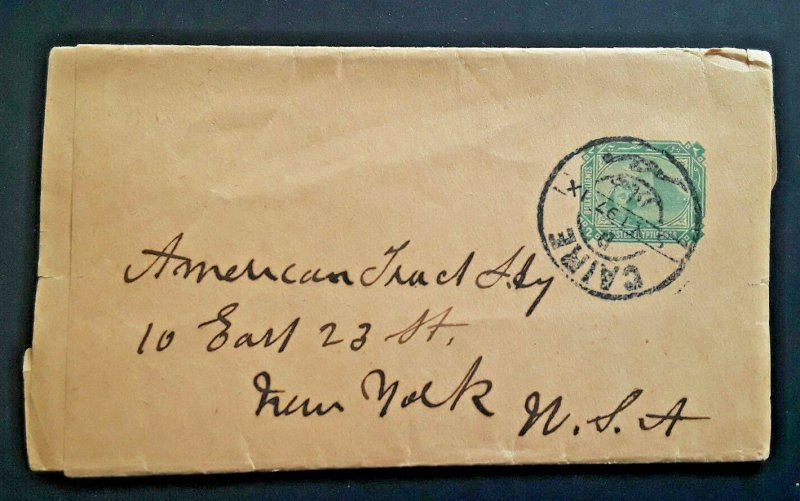 American Tract Sty
10 East 23 St.
New York U.S.A
CAIRE